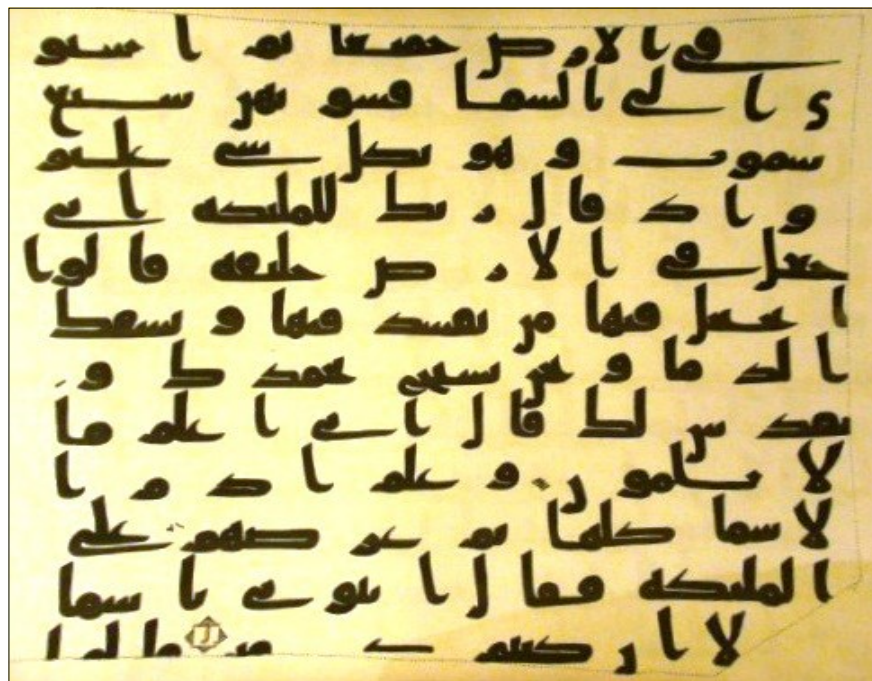 في الارض جميعا ثم استو
ى الى السما فسوهن سبع
سموت وهو بكل شي عليم
واذ قال ربك للملئكة اني
جعل في الارض خليفة قالوا
اتجعل فيها من يفسد فيها ويسفك
الدما ونحن نسبح بحمدك و
نقدس لك قال اني اعلم ما
لا تعلمون وعلم ادم ا
لاسما كلها ثم عرضهم على
الملئكة فقال انبوني باسما
لا ان كنتم صدقين قالوا